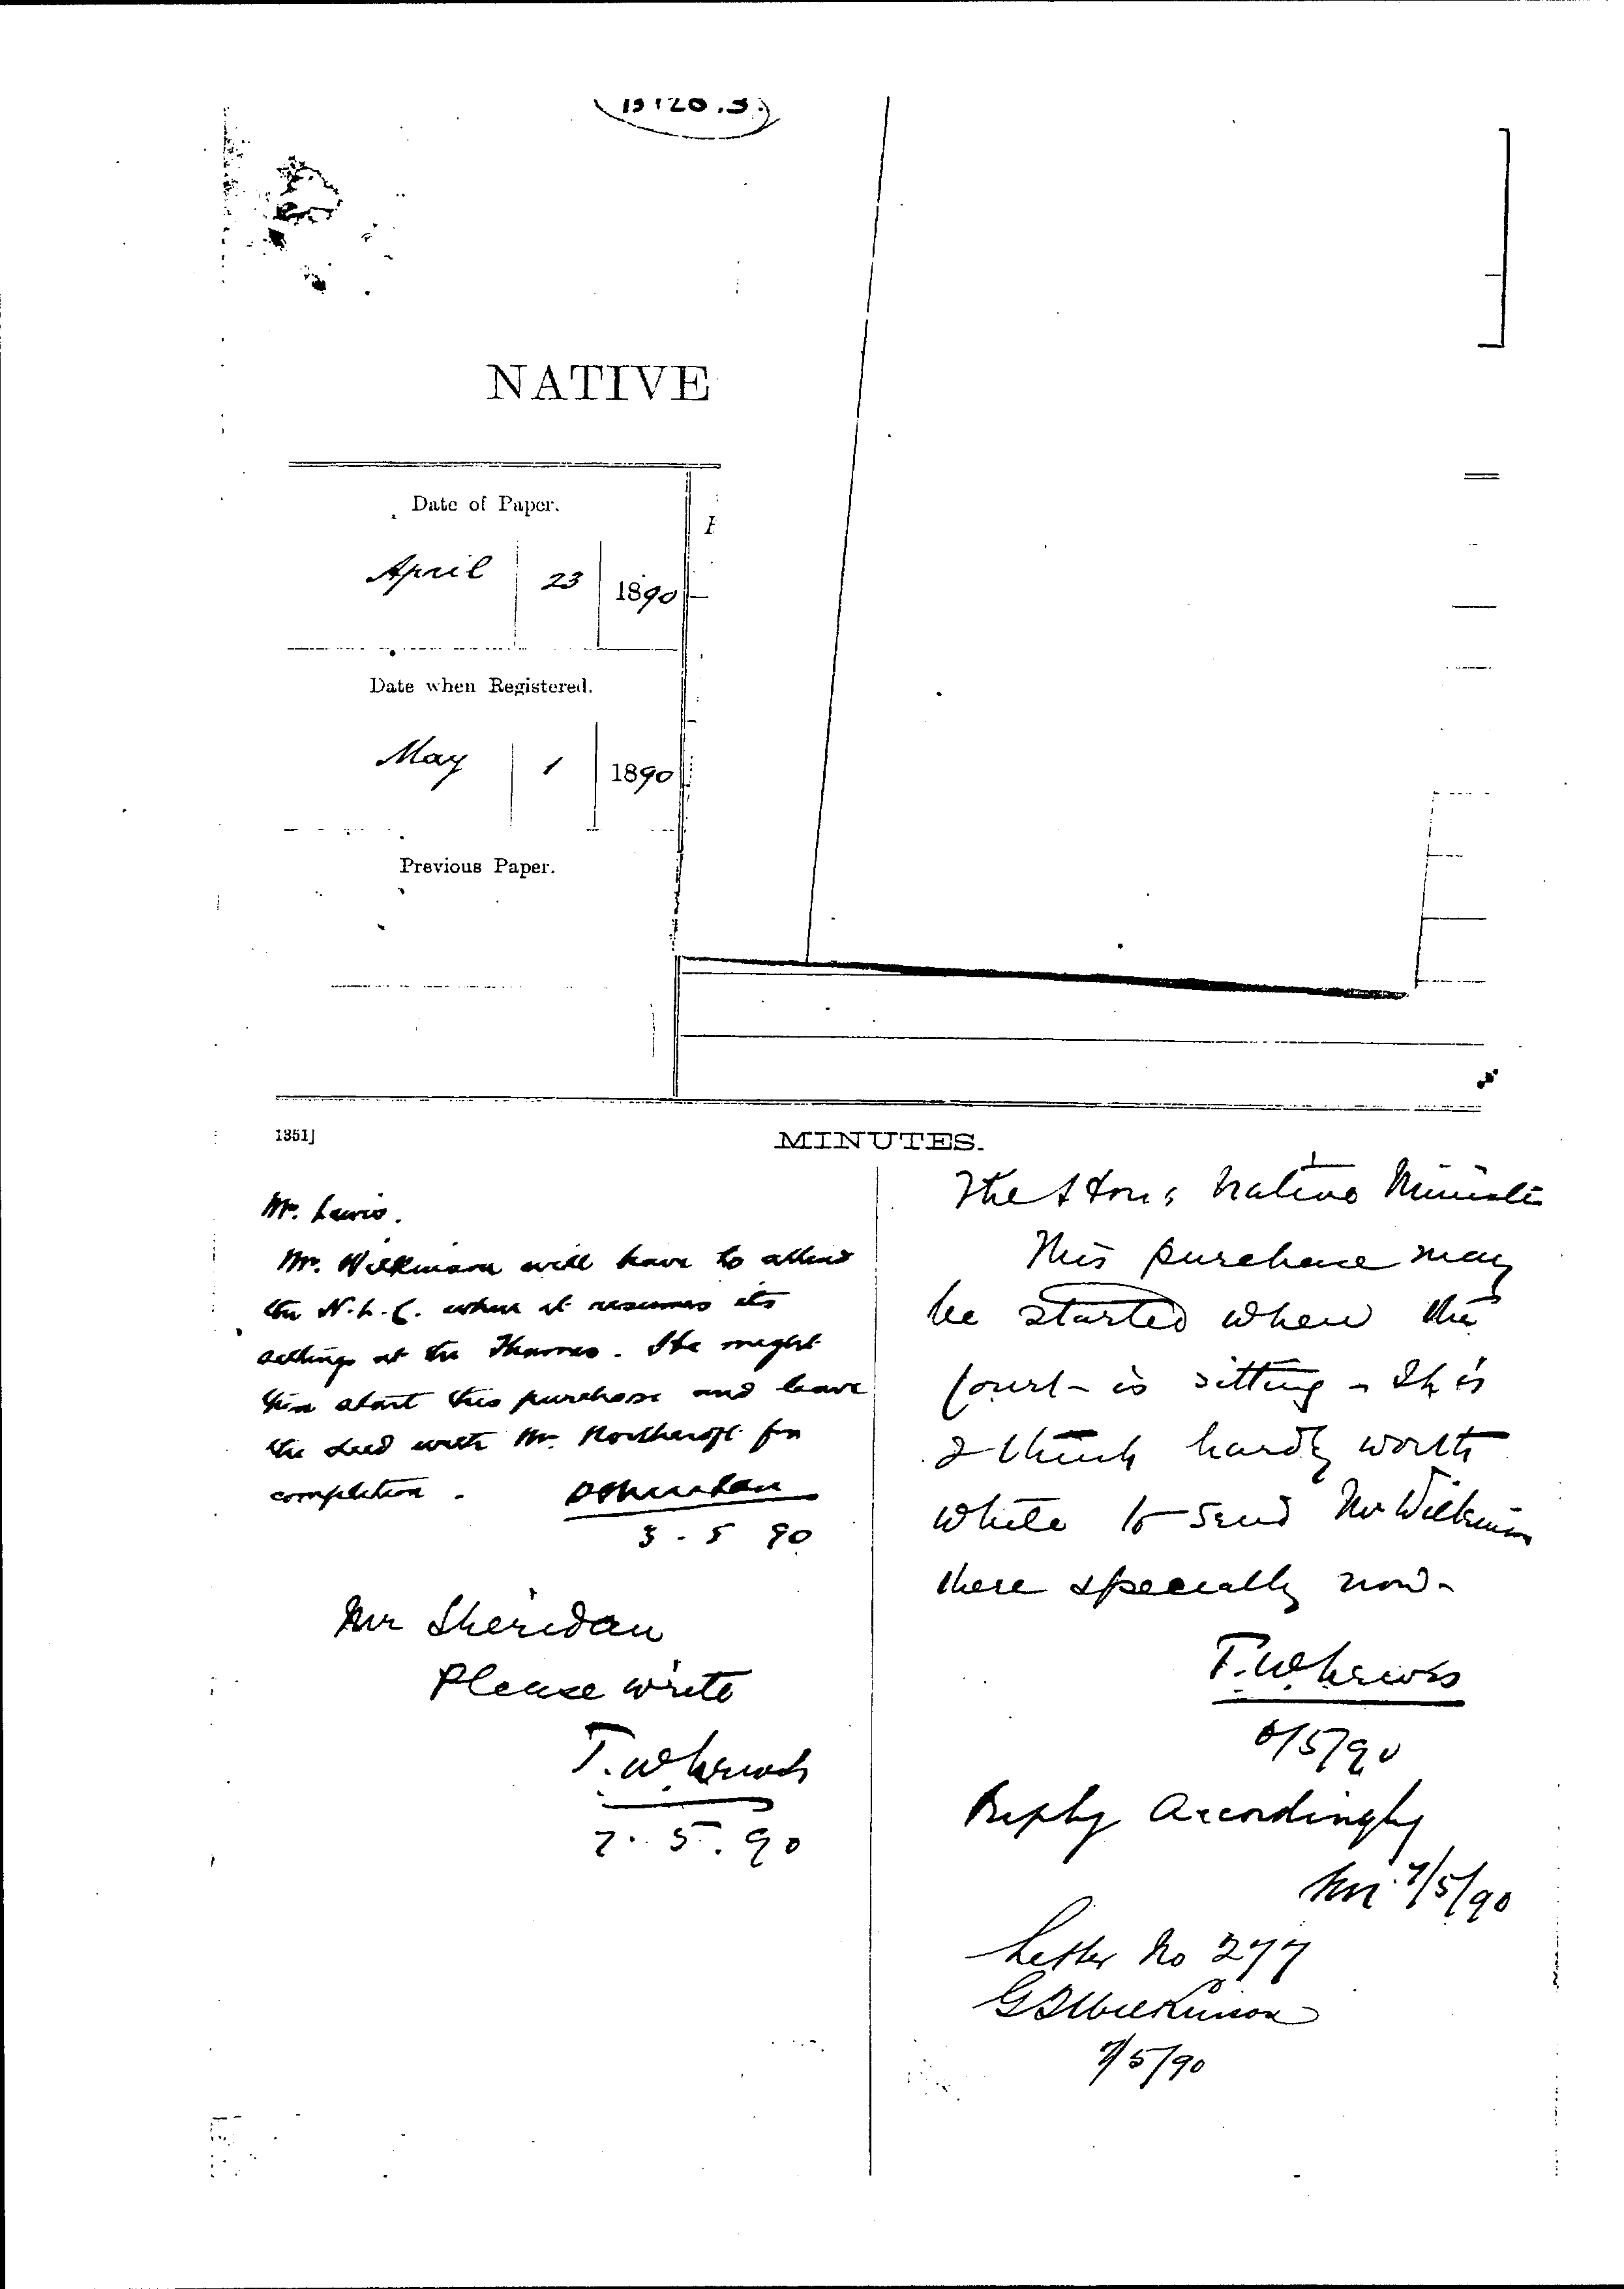 NATIVE
Date of Paper.
April 23 1890
Date when Registered.
May 1 1890
Previous Paper.
1351]
MINUTES.
Mr. Lewis.
Mr. Wilkinson will have to attend
the N.L.C. when it resumes its
sittings at the Thames. He might
then start this purchase and leave
the deed with Mr. Northcroft for
completion.
PSheridan
3-5 90
Mr Sheridan
Please write
T.W.Lewis
7.5.90
The Hon: Native Minister
This purchase may
be started when the
Court is sitting - It is
I think hardly worth
while to send Mr Wilkinson
there specially now-
T.W.Lewis
6/5/90
Reply accordingly
7/5/90
Letter No 277
GTWilkinson
7/5/90